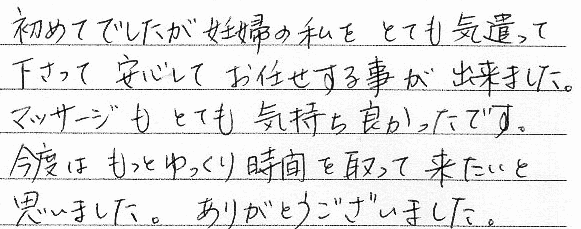 初めてでしたが妊婦の私をとても気遣って
下さって安心してお任せする事が出来ました。
マッサージもとても気持ち良かったです。
今度はもっとゆっくり時間を取って来たいと
思いました。ありがとうございました。